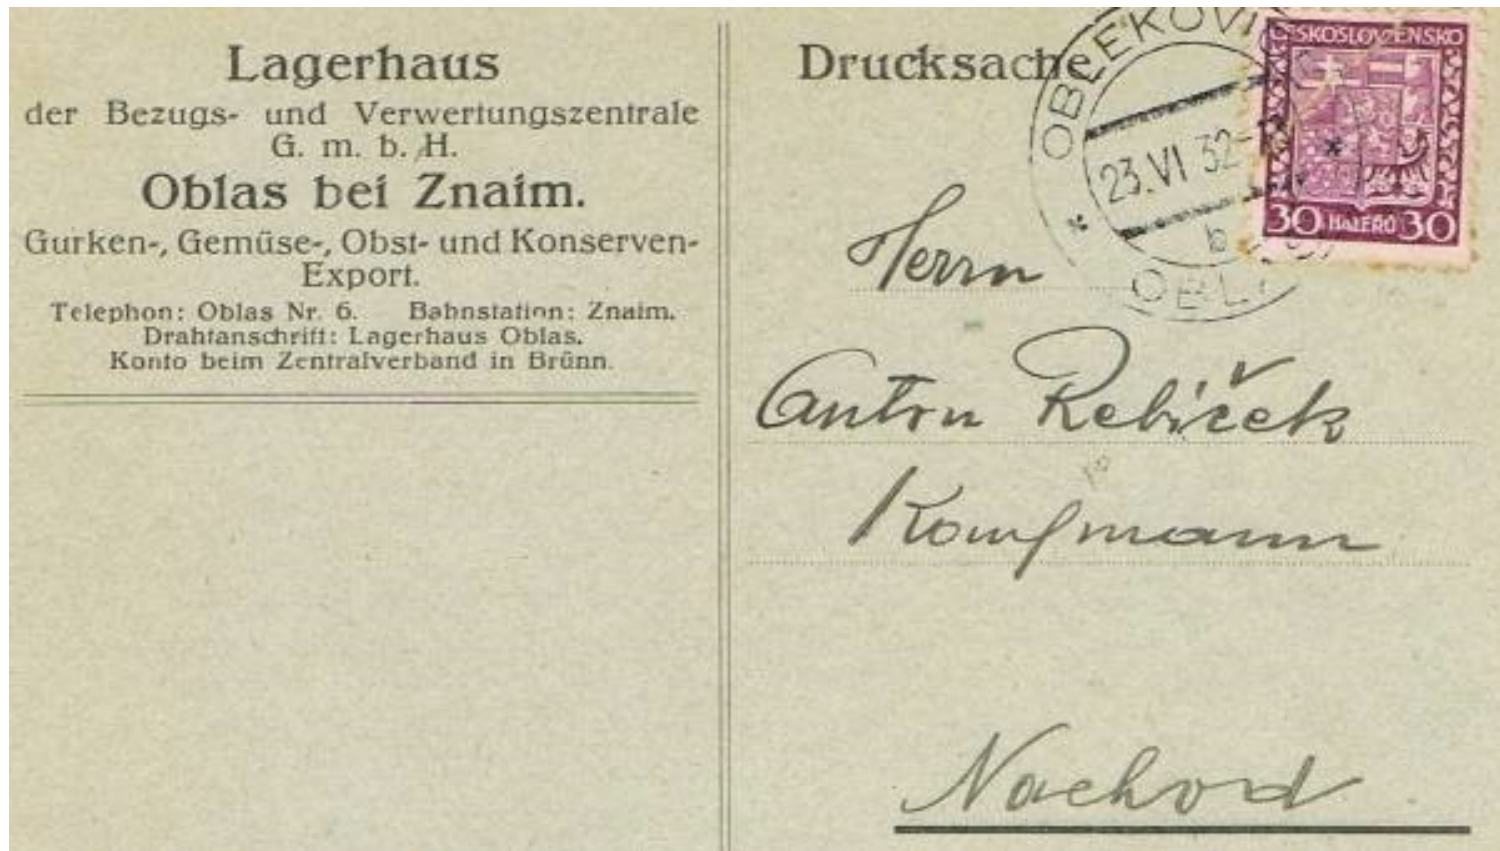 Lagerhaus
der Bezugs- und Verwertungszentrale
G. m. b. H.
Oblas bei Znaim.
Gurken-, Gemüse-, Obst- und Konserven-
Export.
Telephon: Oblas Nr. 6. Bahnstation: Znaim.
Drahtanschrift: Lagerhaus Oblas.
Konto beim Zentralverband in Brünn.
Drucksache
23.VI 32
b
ČESKOSLOVENSKO
30 HALÉŘŮ 30
Herrn
Anton Rebíček
Kaufmann
Nachod